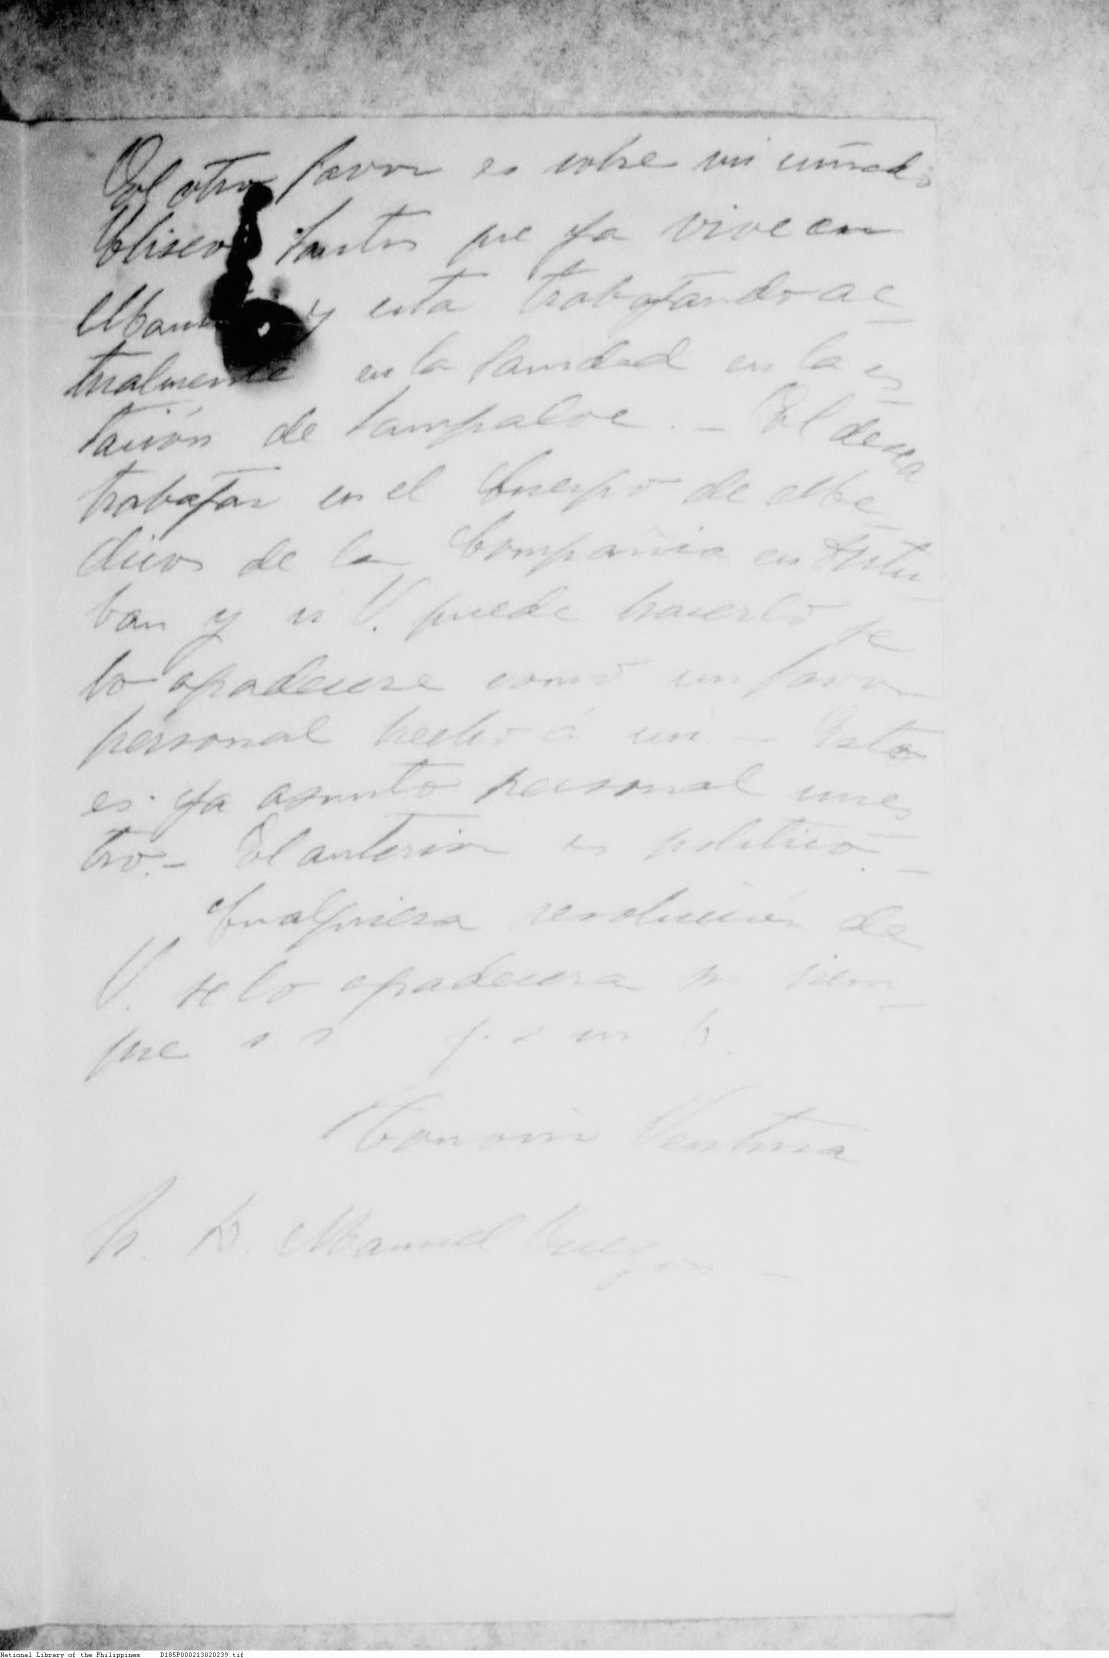 El otro favor es sobre mi cuñado
Eliseo Santos que ya vive en
Manila y esta trabajando ac-
tualmente en la Sanidad en la es-
tación de Sampaloc. - El desea
trabajar en el Cuerpo de Me-
dicos de la Compañia en Tutu-
ban y si V. puede hacerlo se
lo agradecere como un favor
personal hecho á mi - Esto
es ya asunto personal nues
tro. - El anterior es politico. -
Cualquiera resolucion de
V. se lo agradecera su siem-
pre s s q. s m b.
Honorio Ventura
H. D. Manuel Quezon -
National Library of the Philippines D185P000213020239.tif